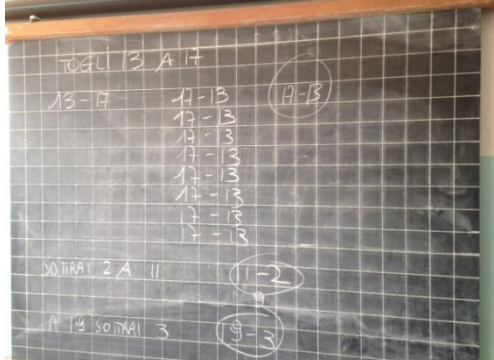 TOGLI 13 A 17
13-17 17-13 17-13
17-13
17-3
17-13
17-13
17-13
17-13
17-13
SOTTRAI 2 A 11 11-2
9
A 19 SOTTRAI 3 19-3